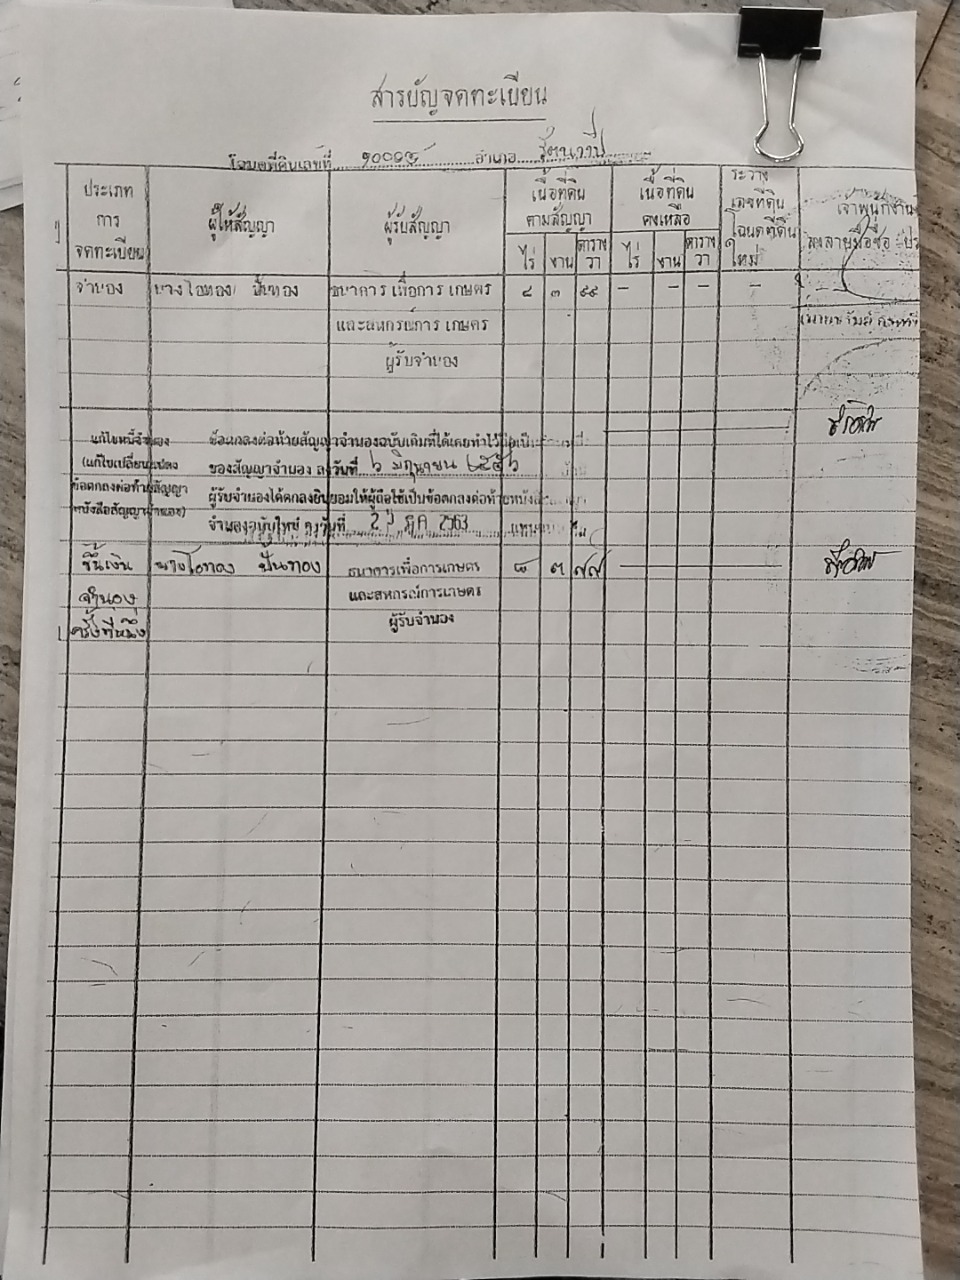 สารบัญจดทะเบียน
โฉนดที่ดินเลขที่ อำเภอ รัตนวาปี
ประเภท
การ
จดทะเบียน
ผู้ให้สัญญา
ผู้รับสัญญา
เนื้อที่ดิน
ตามสัญญา
ไร่ งาน ตาราง
วา
เนื้อที่ดิน
คงเหลือ
ไร่ งาน ตาราง
วา
ระวาง
เลขที่ดิน
โฉนดที่ดิน
ใหม่
เจ้าพนักงาน
ลงลายมือชื่อ ประ
จำนอง นางไอทอง ปั้นทอง ธนาคารเพื่อการเกษตร ๘ ๓ ๙๙ – – – –
และสหกรณ์การเกษตร
ผู้รับจำนอง
แก้ไขหนี้จำนอง
(แก้ไขเปลี่ยนแปลง
ข้อตกลงต่อท้ายสัญญา
หนังสือสัญญาจำนอง)
ข้อตกลงต่อท้ายสัญญาจำนองฉบับเดิมที่ได้เคยทำไว้
ของสัญญาจำนอง ลงวันที่ ๖ มิถุนายน ๒๕๕๖
ผู้รับจำนองได้ตกลงยินยอมให้ผู้ถือใช้เป็นข้อตกลงต่อท้ายหนังสือสัญญา
จำนองฉบับใหม่ ลงวันที่ ตค 2563
ขึ้นเงิน นางไอทอง ปั้นทอง ธนาคารเพื่อการเกษตร ๘ ๓ ๙๙
จำนอง และสหกรณ์การเกษตร
ครั้งที่หนึ่ง ผู้รับจำนอง